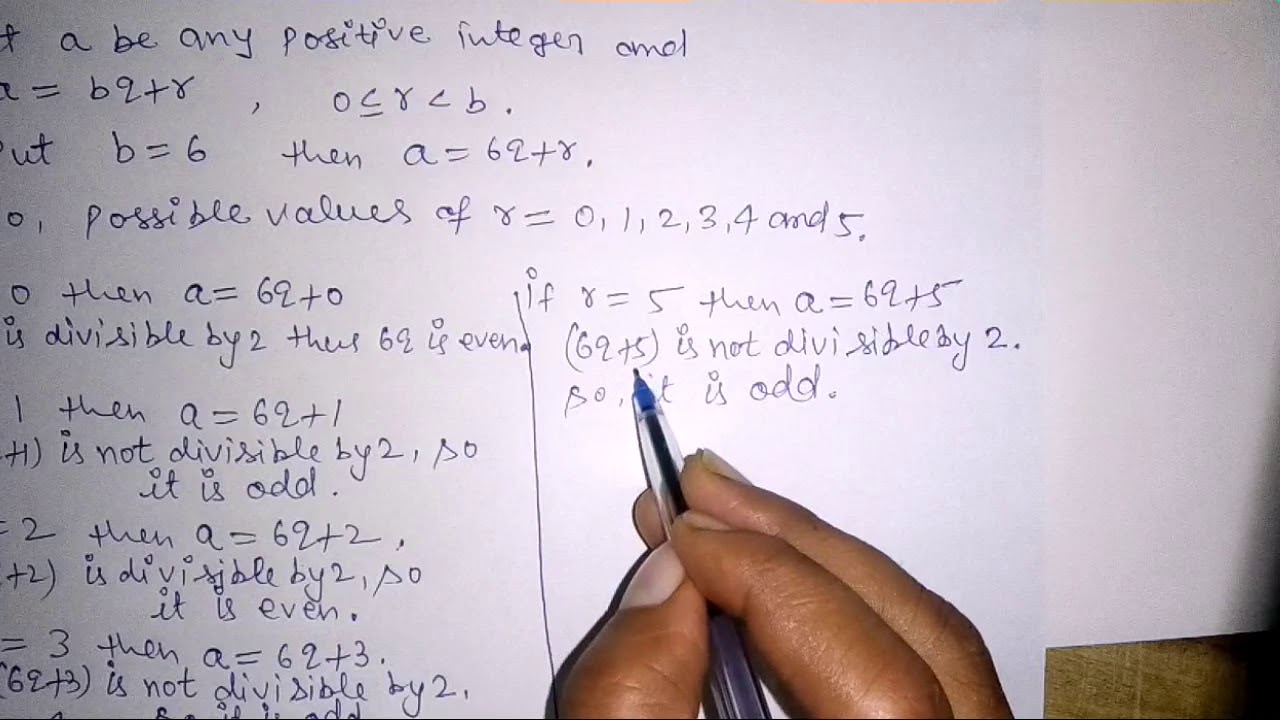 a be any positive integer and
a = bq+r , 0 ≤ r < b.
put b = 6 then a = 6q+r.
possible values of r = 0, 1, 2, 3, 4 and 5.
0 then a = 6q+0
is divisible by 2 thus 6q is even.
1 then a = 6q+1
+1) is not divisible by 2, so
it is odd.
= 2 then a = 6q+2.
+2) is divisible by 2, so
it is even.
= 3 then a = 6q+3.
(6q+3) is not divisible by 2,
so it is odd
if r = 5 then a = 6q+5
(6q+5) is not divisible by 2.
so, it is odd.